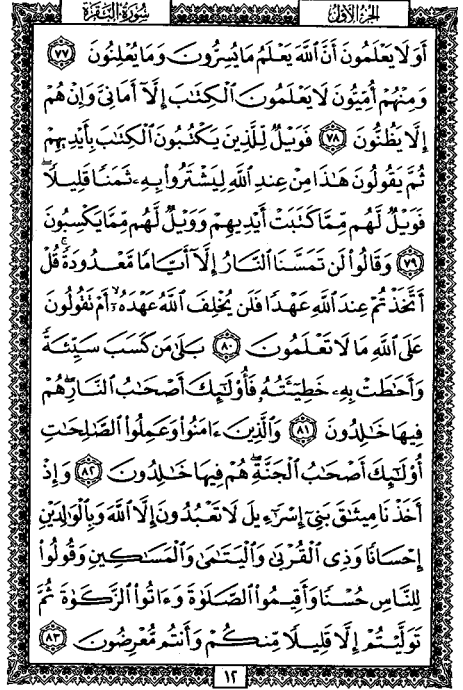 سُورَةُ البَقَرَةِ الجُزءُ الأوّلُ
أَوَلَا يَعْلَمُونَ أَنَّ ٱللَّهَ يَعْلَمُ مَا يُسِرُّونَ وَمَا يُعْلِنُونَ ٧٧
وَمِنْهُمْ أُمِّيُّونَ لَا يَعْلَمُونَ ٱلْكِتَٰبَ إِلَّآ أَمَانِىَّ وَإِنْ هُمْ
إِلَّا يَظُنُّونَ ٧٨ فَوَيْلٌ لِّلَّذِينَ يَكْتُبُونَ ٱلْكِتَٰبَ بِأَيْدِيهِمْ
ثُمَّ يَقُولُونَ هَٰذَا مِنْ عِندِ ٱللَّهِ لِيَشْتَرُوا۟ بِهِۦ ثَمَنًا قَلِيلًاۖ
فَوَيْلٌ لَّهُم مِّمَّا كَتَبَتْ أَيْدِيهِمْ وَوَيْلٌ لَّهُم مِّمَّا يَكْسِبُونَ
٧٩ وَقَالُوا۟ لَن تَمَسَّنَا ٱلنَّارُ إِلَّآ أَيَّامًا مَّعْدُودَةًۚ قُلْ
أَتَّخَذْتُمْ عِندَ ٱللَّهِ عَهْدًا فَلَن يُخْلِفَ ٱللَّهُ عَهْدَهُۥٓۖ أَمْ تَقُولُونَ
عَلَى ٱللَّهِ مَا لَا تَعْلَمُونَ ٨٠ بَلَىٰ مَن كَسَبَ سَيِّئَةً
وَأَحَٰطَتْ بِهِۦ خَطِيٓـَٔتُهُۥ فَأُو۟لَٰٓئِكَ أَصْحَٰبُ ٱلنَّارِۖ هُمْ
فِيهَا خَٰلِدُونَ ٨١ وَٱلَّذِينَ ءَامَنُوا۟ وَعَمِلُوا۟ ٱلصَّٰلِحَٰتِ
أُو۟لَٰٓئِكَ أَصْحَٰبُ ٱلْجَنَّةِۖ هُمْ فِيهَا خَٰلِدُونَ ٨٢ وَإِذْ
أَخَذْنَا مِيثَٰقَ بَنِىٓ إِسْرَٰٓءِيلَ لَا تَعْبُدُونَ إِلَّا ٱللَّهَ وَبِٱلْوَٰلِدَيْنِ
إِحْسَانًا وَذِى ٱلْقُرْبَىٰ وَٱلْيَتَٰمَىٰ وَٱلْمَسَٰكِينِ وَقُولُوا۟
لِلنَّاسِ حُسْنًا وَأَقِيمُوا۟ ٱلصَّلَوٰةَ وَءَاتُوا۟ ٱلزَّكَوٰةَ ثُمَّ
تَوَلَّيْتُمْ إِلَّا قَلِيلًا مِّنكُمْ وَأَنتُم مُّعْرِضُونَ ٨٣
١٢